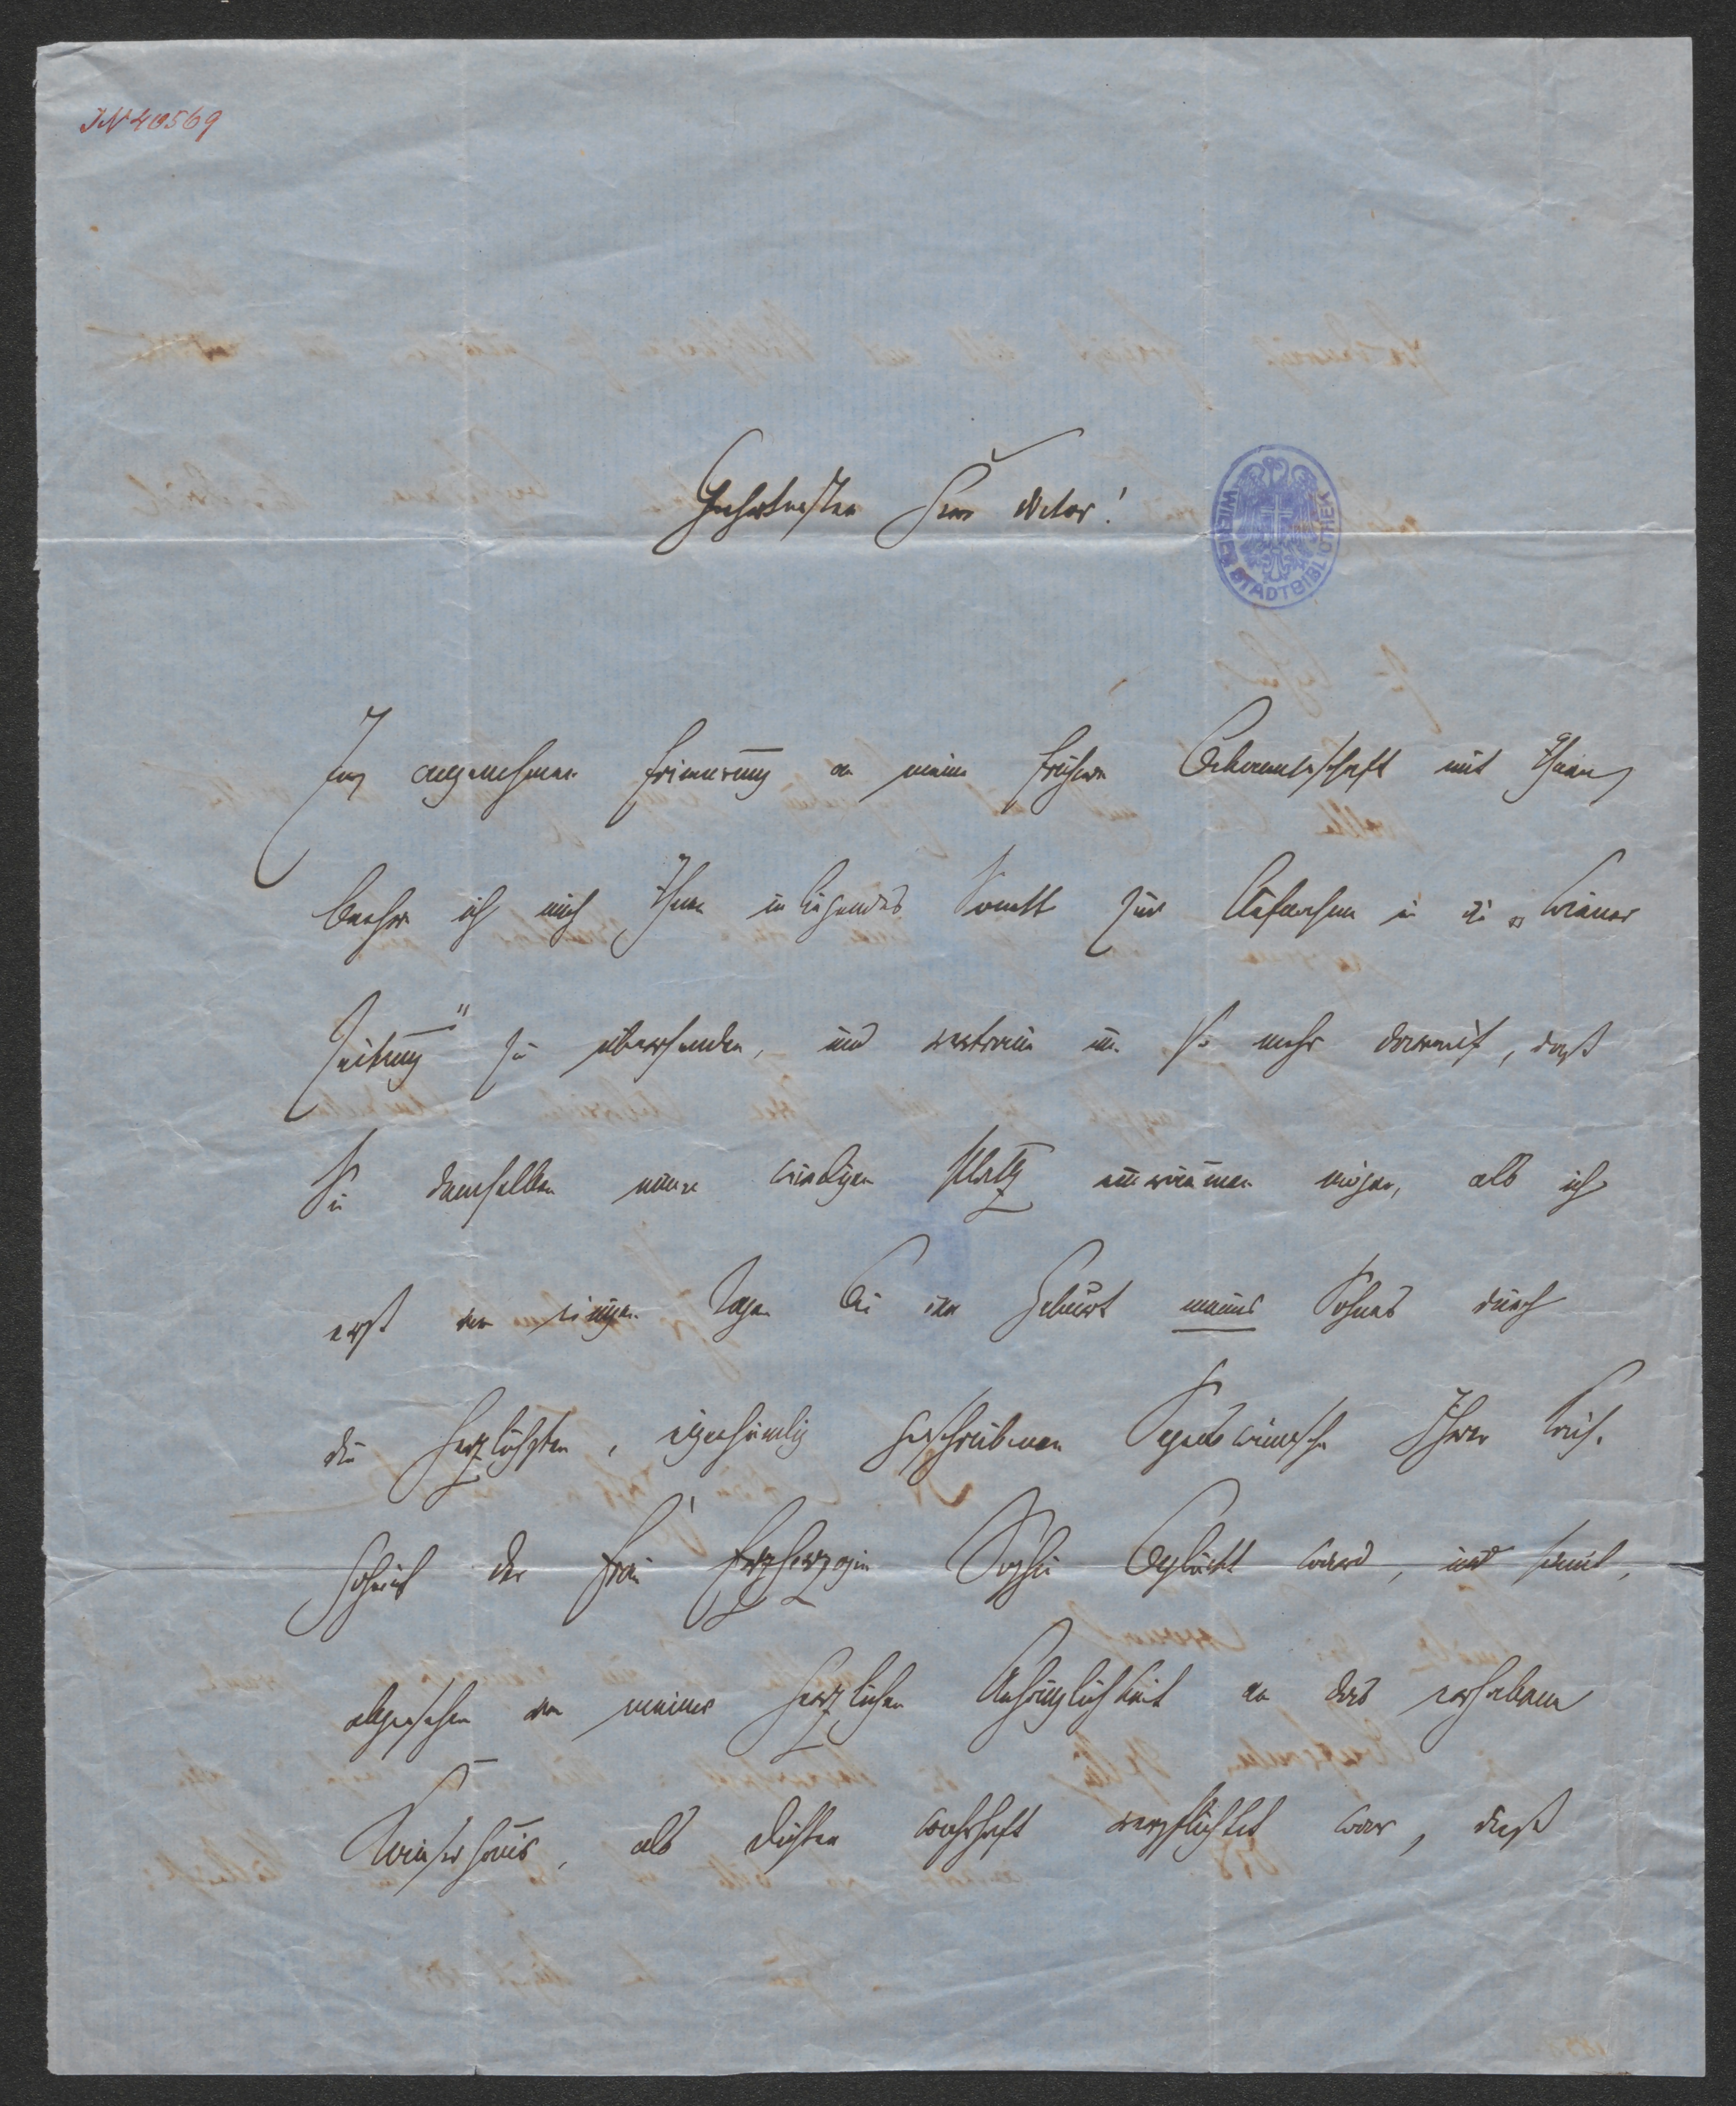 JN 40569
Geehrtester Herr Doctor!
WIENER STADTBIBLIOTHEK
In angenehmer Erinnerung an meine frühere Bekanntschaft mit Ihnen
beehre ich mich Ihnen inliegendes Sonett zur Aufnahme in die „Wiener
Zeitung" zu übersenden, und vertraue um so mehr darauf, daß
Sie demselben einen würdigen Platz einräumen mögen, als ich
erst vor einigen Tagen bei der Geburt meines Sohnes durch
die herzlichsten, eigenhändig geschriebenen Segenswünsche Ihrer kais.
Hoheit der Frau Erzherzogin Sophie beglückt ward, und somit,
abgesehen von meiner herzlichen Anhänglichkeit an das erhabene
Kaiserhaus, als Dichter wahrhaft verpflichtet war, dieß